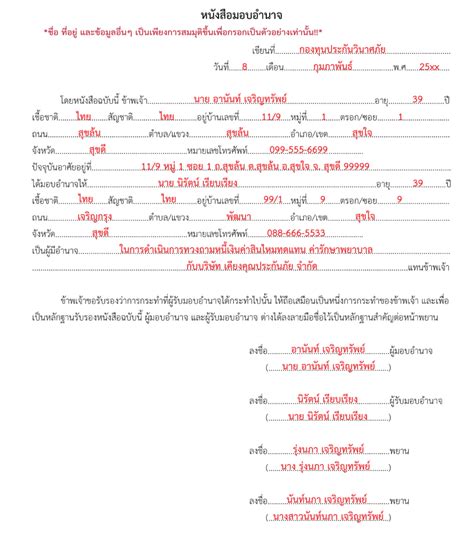 หนังสือมอบอำนาจ
*ชื่อ ที่อยู่ และข้อมูลอื่นๆ เป็นเพียงการสมมุติขึ้นเพื่อกรอกเป็นตัวอย่างเท่านั้น!!*
เขียนที่ กองทุนประกันวินาศภัย
วันที่ 8 เดือน กุมภาพันธ์ พ.ศ. 25xx
โดยหนังสือฉบับนี้ ข้าพเจ้า นาย อานันท์ เจริญทรัพย์ อายุ 39 ปี
เชื้อชาติ ไทย สัญชาติ ไทย อยู่บ้านเลขที่ 11/9 หมู่ที่ 1 ตรอก/ซอย 1
ถนน สุขล้น ตำบล/แขวง สุขล้น อำเภอ/เขต สุขใจ
จังหวัด สุขดี หมายเลขโทรศัพท์ 099-555-6699
ปัจจุบันอาศัยอยู่ที่ 11/9 หมู่ 1 ซอย 1 ถ.สุขล้น ต.สุขล้น อ.สุขใจ จ. สุขดี 99999
ได้มอบอำนาจให้ นาย นิรัตน์ เรียบเรียง อายุ 39 ปี
เชื้อชาติ ไทย สัญชาติ ไทย อยู่บ้านเลขที่ 99/1 หมู่ที่ 9 ตรอก/ซอย 9
ถนน เจริญกรุง ตำบล/แขวง พัฒนา อำเภอ/เขต สุขใจ
จังหวัด สุขดี หมายเลขโทรศัพท์ 088-666-5533
เป็นผู้มีอำนาจ ในการดำเนินการทวงถามหนี้เงินค่าสินไหมทดแทน ค่ารักษาพยาบาล
กับบริษัท เคียงคุณประกันภัย จำกัด แทนข้าพเจ้า
ข้าพเจ้าขอรับรองว่าการกระทำที่ผู้รับมอบอำนาจได้กระทำไปนั้น ให้ถือเสมือนเป็นหนึ่งการกระทำของข้าพเจ้า และเพื่อ
เป็นหลักฐานรับรองหนังสือฉบับนี้ ผู้มอบอำนาจ และผู้รับมอบอำนาจ ต่างได้ลงลายมือชื่อไว้เป็นหลักฐานสำคัญต่อหน้าพยาน
ลงชื่อ อานันท์ เจริญทรัพย์ ผู้มอบอำนาจ
( นาย อานันท์ เจริญทรัพย์ )
ลงชื่อ นิรัตน์ เรียบเรียง ผู้รับมอบอำนาจ
( นาย นิรัตน์ เรียบเรียง )
ลงชื่อ รุ่งนภา เจริญทรัพย์ พยาน
( นาง รุ่งนภา เจริญทรัพย์ )
ลงชื่อ นันท์นภา เจริญทรัพย์ พยาน
( นางสาวนันท์นภา เจริญทรัพย์ )